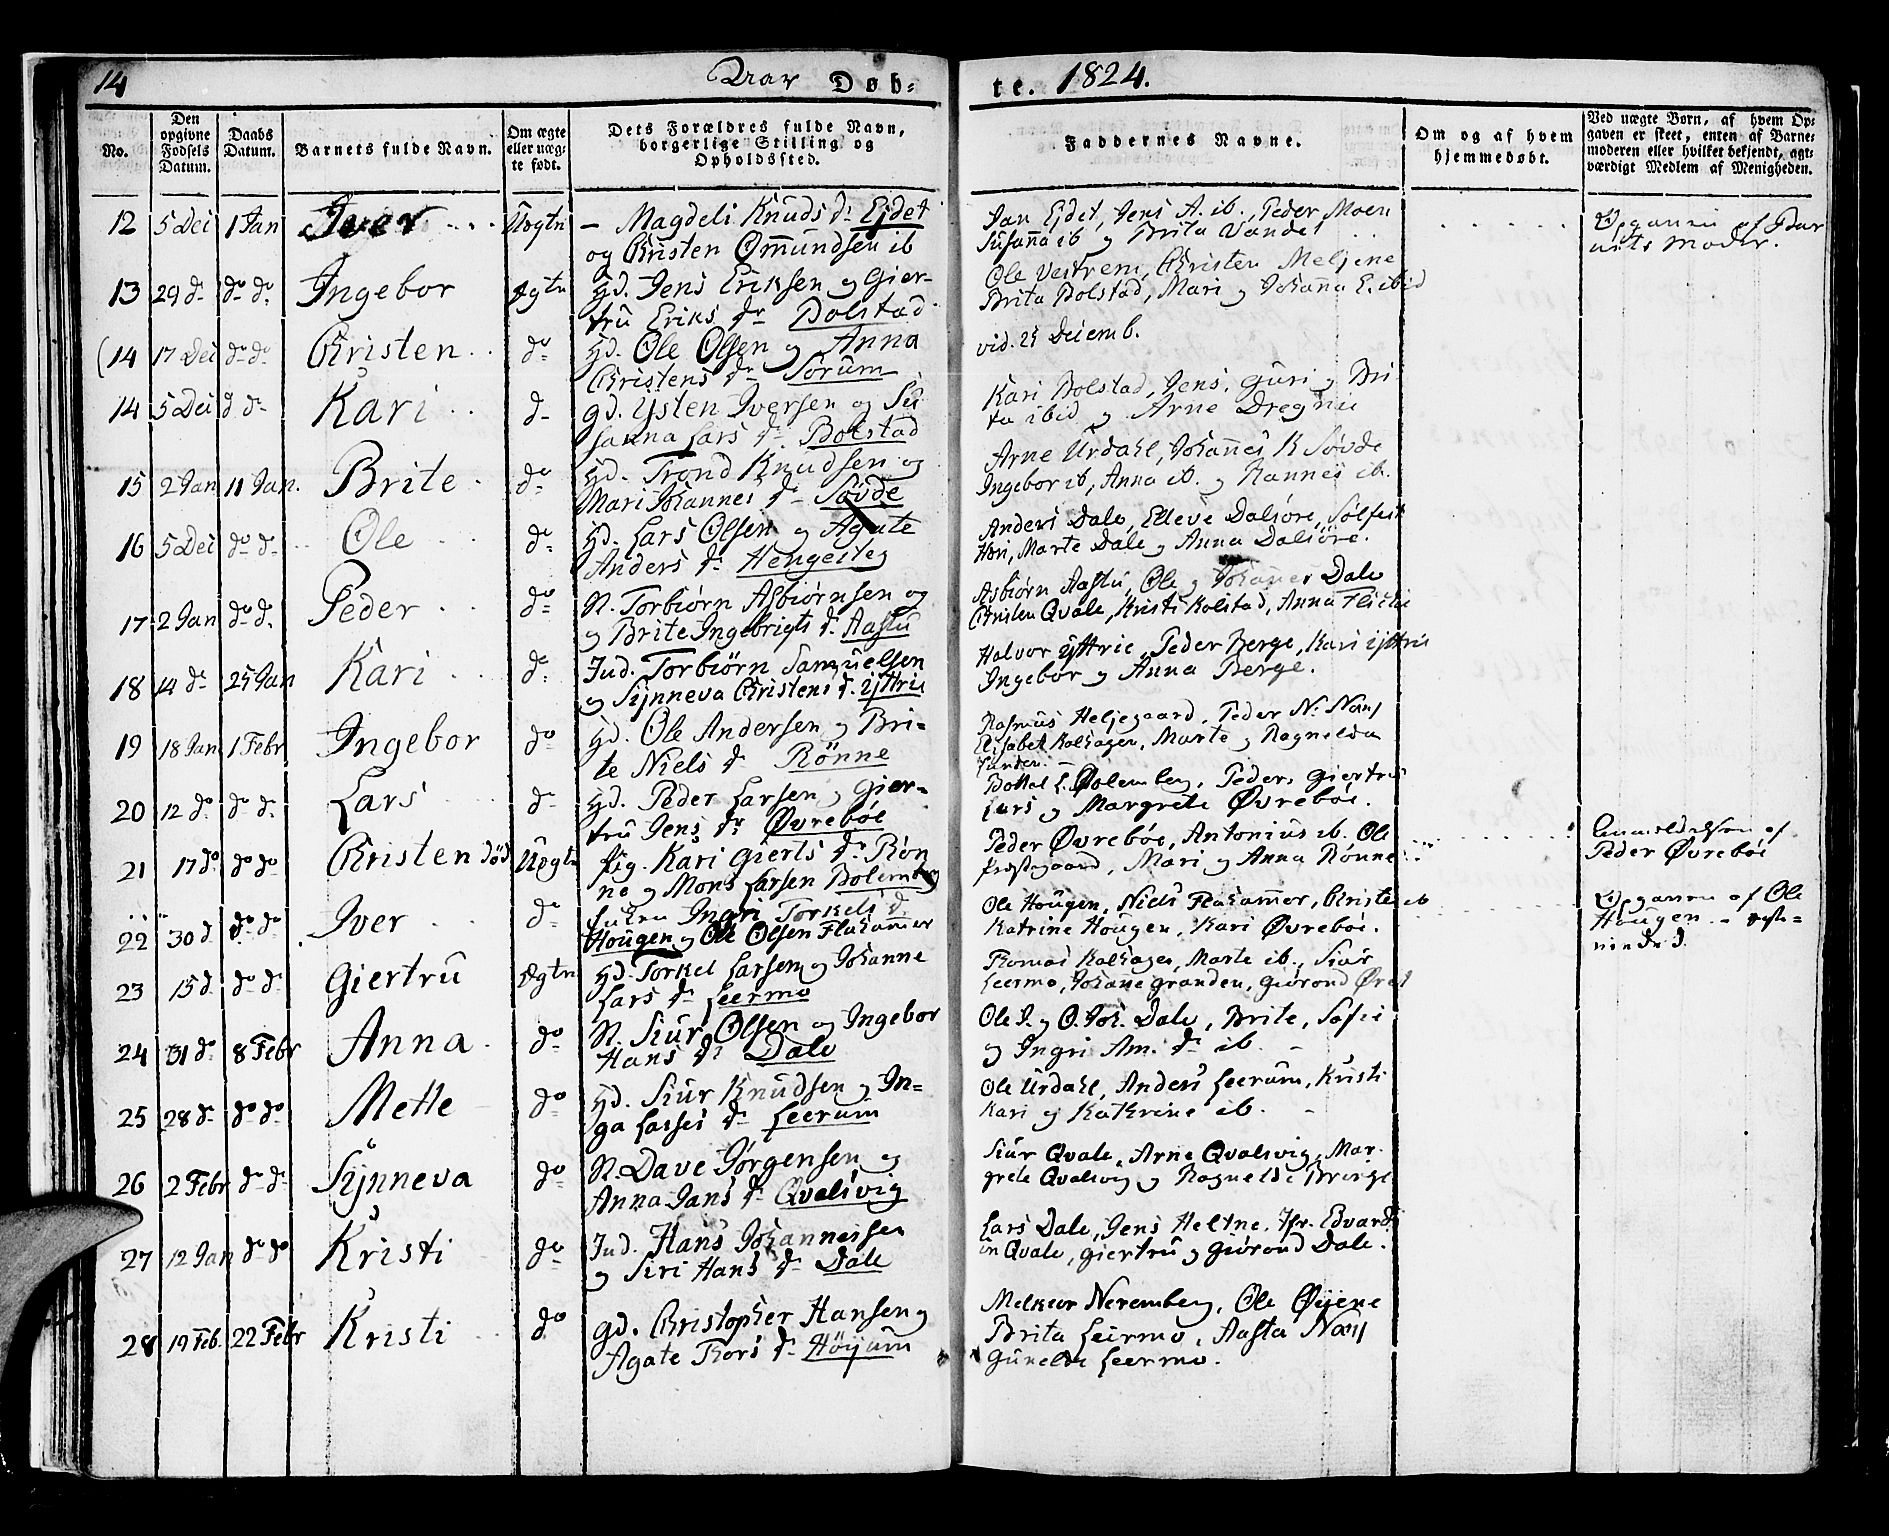 14
Aar Døb-
te. 1824.
No.
Den opgivne Fødsels Datum.
Daabs Datum.
Barnets fulde Navn.
Om ægte eller uægte født.
Dets Forældres fulde Navn, borgerlige Stilling og Opholdssted.
Faddernes Navne.
Om og af hvem hjemmedøbt.
Ved uægte Børn, af hvem Opgaven er skeet, enten af Barnemoderen eller hvilket bekjendt, agtværdigt Medlem af Menigheden.
12 5 Dei 1 Jan Iver Uegtn — Magdeli Knuds dr Ejdet
og Christen Omundsen ib
Jan Ejdet, Jens A. ib., Peder Moen
Susanna ib og Brita Vandet
Opgaven af Bar
nets Moder.
13 29 d do do Ingebor Ægtn Gd. Jens Eriksen og Gier-
tru Eriks dr Bolstad
Ole Vestrem, Christen Meljene
Brita Bolstad, Mari og Johanna E. ibid
14 17 Dei do do Christen do Gd. Ole Olsen og Anna
Christens dr Sorum
vid. 25 Deiemb.
14 5 Dei d do Kari d Gd. Ysten Iversen og Su
sanna Lars dr Bolstad
Kari Bolstad, Jens, Guri og Bri
ta ibid og Arne Dregnie
15 2 Jan 11 Jan. Brite do Gd. Trond Knudsen og
Mari Johannes dr Søvde
Arne Urdahl, Johannes K Søvde
Ingebor ib, Anna ib. og Hannes ib.
16 5 Dei do do Ole do Gd. Lars Olsen og Agate
Anders dr Hengesteg
Anders Dale, Elleve Dalsøre, Solfest
Hon, Marte Dale og Anna Dalsöre.
17 2 Jan do do Peder do N. Torbiørn Asbiørnsen og
og Brite Ingebrigts dr Aastu
Asbiørn Aastu, Ole og Johannes Dale
Christen Qvale, Kristi Kolstad, Anna
18 14 do 25 Jan Kari do Ind. Torbiörn Samuelsen
og Synneva Christens dr Yttrie
Halvor Yttrie, Peder Berge, Kari Yttrie
Ingebor og Anna Berge.
19 18 Jan 1 Febr Ingebor do Gd. Ole Andersen og Bri-
te Niels dr Rönne
Rasmus Heljegaard, Peder N. Næs
Elisabet Kolhagen, Marte og Ragnelda
20 12 do do do Lars do Gd. Peder Larsen og Gier-
tru Jens dr Øvrebøe
Peder, Giertru
Lars og Margrete Øvrebøe.
21 17 do do do Christen död Uegtn Pig. Kari Gierts dr Røn
ne og Mons Larsen Bolemberg
Peder Øvrebøe, Antonius ib. Ole
Prestegaard, Mari og Anna Rønne
Anmeldelsen af
Peder Øvrebøe
22 30 d do do Iver do Ingri Torkels d
Hougen og Ole Olsen Flahamer
Ole Hougen, Niels Flahammer, Christen ib
Katrine Hougen, Kari Øvrebøe.
Opgaven af Ole
Hougen
23 15 d do do Giertru Ægtn Gd. Torkel Larsen og Johanne
Lars dr Leermo
Thomas Kolhagen, Marte ib., Siur
Leermo, Johane Granden, Giørond
24 31 do 8 Febr Anna do N. Siur Olsen og Ingebor
Hans dr Dale
Ole J. og O. Joh. Dale, Brite, Sofie
og Ingri Am. dr ib
25 28 do do do Mette do Gd. Siur Knudsen og In-
ga Lasses dr Leerum
Ole Urdahl, Anders Leerum, Kristi
Kari og Kathrine ib.
26 2 Febr do do Synneva do N. Dave Jørgensen og
Anna Jans dr Qvalsvig
Siur Qvale, Arne Qvalsvig, Mar-
grete Qvalsvig og Ragnelde
27 12 Jan do do Kristi do Ind. Hans Johannessen
og Siri Hans dr Dale
Lars Dale, Jens Heltne, Jfr. Edvardi
in Qvale, Giertru og Giørond Dale.
28 19 Feb. 22 Febr Kristi do Gd. Christopher Hansen og
Agate Thors dr Höyum
Melkeor Neremberg, Ole Øyene
Brita Leirmo, Aasta Næss
Gunelde Leermo.